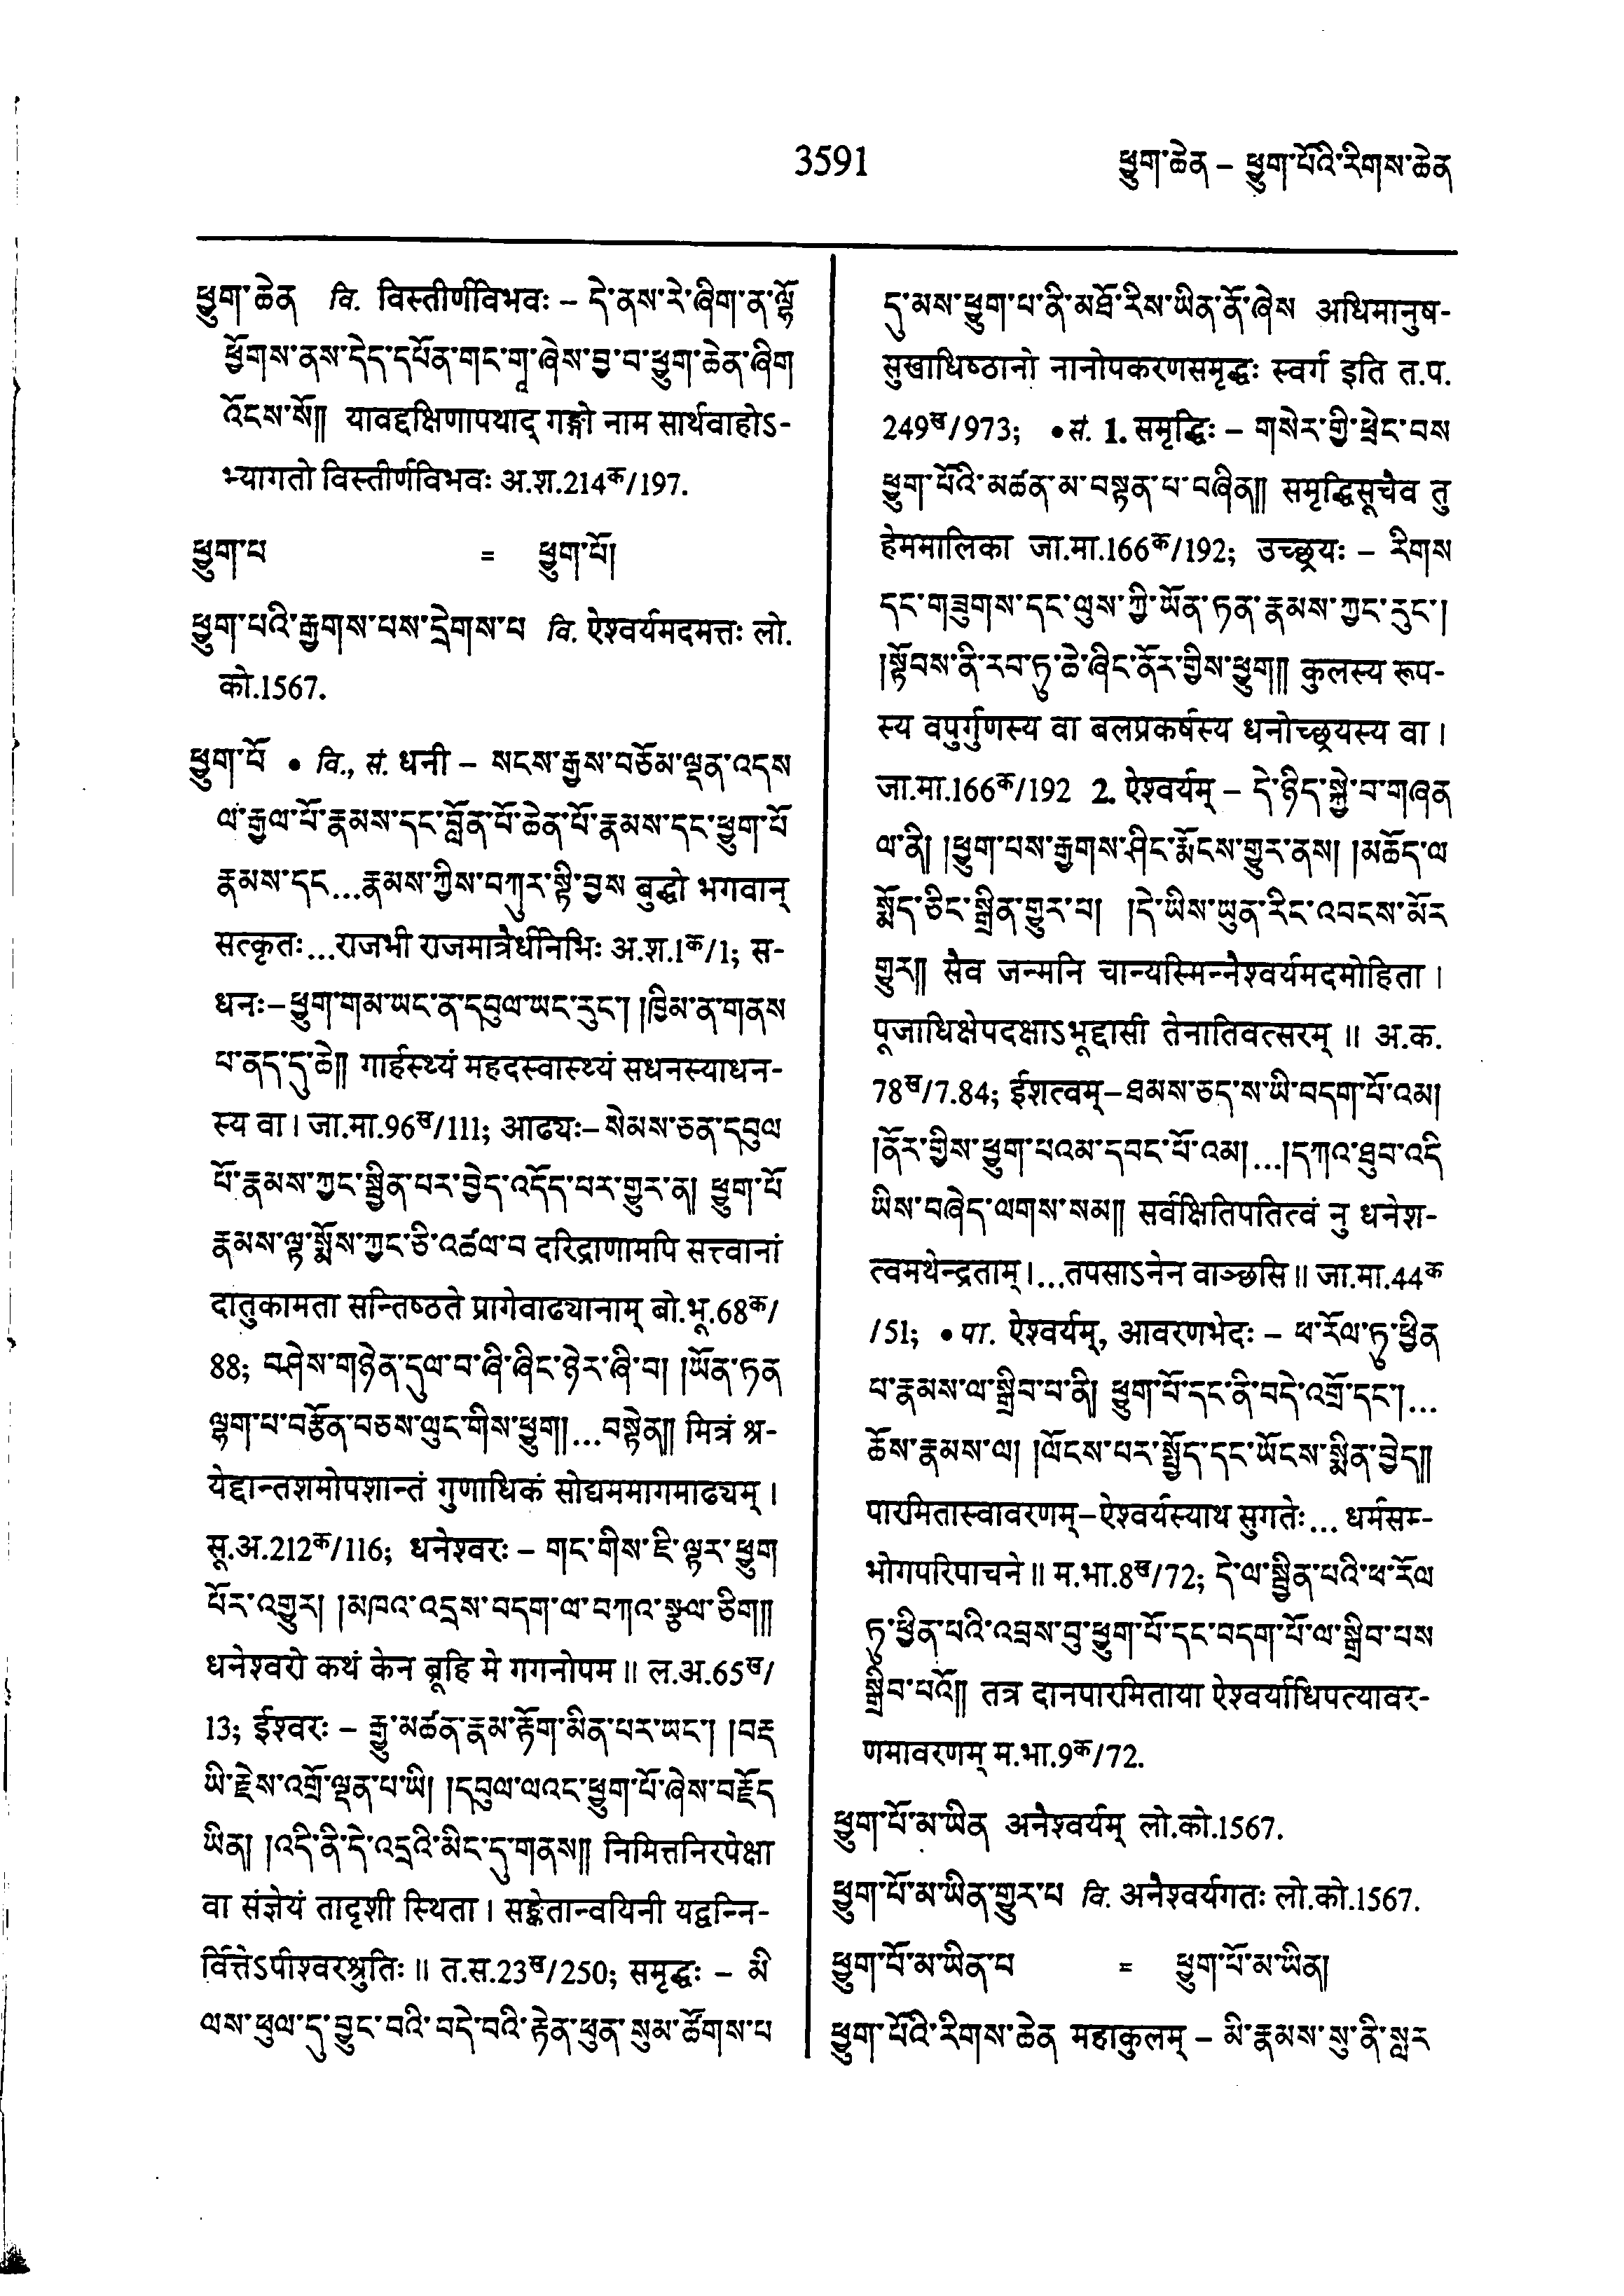 3591
ཕྱུག་ཆེན – ཕྱུག་པོའི་རིགས་ཆེན
ཕྱུག་ཆེན वि. विस्तीर्णविभवः – དེ་ནས་རེ་ཞིག་ན་ལྷོ
ཕྱོགས་ནས་དེད་དཔོན་གང་གཱ་ཞེས་བྱ་བ་ཕྱུག་ཆེན་ཞིག
འོངས་སོ༎ यावद्दक्षिणापथाद् गङ्गो नाम सार्थवाहोऽ-
भ्यागतो विस्तीर्णविभवः अ.श.214क/197.
ཕྱུག་པ = ཕྱུག་པོ།
ཕྱུག་པའི་རྒྱགས་པས་དྲེགས་པ वि. ऐश्वर्यमदमत्तः लो.
को.1567.
ཕྱུག་པོ • वि., सं. धनी – སངས་རྒྱས་བཅོམ་ལྡན་འདས
ལ་རྒྱལ་པོ་རྣམས་དང་བློན་པོ་ཆེན་པོ་རྣམས་དང་ཕྱུག་པོ
རྣམས་དང...རྣམས་ཀྱིས་བཀུར་སྟི་བྱས बुद्धो भगवान्
सत्कृतः...राजभी राजमात्रैर्धनिभिः अ.श.1क/1; स-
धनः–ཕྱུག་གམ་ཡང་ན་དབུལ་ཡང་རུང་། །ཁྱིམ་ན་གནས
པ་ནད་དུ་ཆེ༎ गार्हस्थ्यं महदस्वास्थ्यं सधनस्याधन-
स्य वा। जा.मा.96ख/111; आढ्यः–སེམས་ཅན་དབུལ
པོ་རྣམས་ཀྱང་སྦྱིན་པར་བྱེད་འདོད་པར་གྱུར་ན། ཕྱུག་པོ
རྣམས་ལྟ་སྨོས་ཀྱང་ཅི་འཚལ་བ दरिद्राणामपि सत्त्वानां
दातुकामता सन्तिष्ठते प्रागेवाढ्यानाम् बो.भू.68क/
88; བཤེས་གཉེན་དུལ་བ་ཞི་ཞིང་ཉེར་ཞི་བ། །ཡོན་ཏན
ལྷག་པ་བརྩོན་བཅས་ལུང་གིས་ཕྱུག།...བསྟེན༎ मित्रं श्र-
येद्दान्तशमोपशान्तं गुणाधिकं सोद्यममागमाढ्यम्।
सू.अ.212क/116; धनेश्वरः – གང་གིས་ཇི་ལྟར་ཕྱུག
པོར་འགྱུར། །མཁའ་འདྲས་བདག་ལ་བཀའ་སྩལ་ཅིག༎
धनेश्वरो कथं केन ब्रूहि मे गगनोपम॥ ल.अ.65ख/
13; ईश्वरः – རྒྱུ་མཚན་རྣམ་རྟོག་མིན་པར་ཡང་། །བརྡ
ཡི་རྗེས་འགྲོ་ལྡན་པ་ཡི། །དབུལ་ལའང་ཕྱུག་པོ་ཞེས་བརྗོད
ཡིན། །འདི་ནི་དེ་འདྲའི་མིང་དུ་གནས༎ निमित्तनिरपेक्षा
वा संज्ञेयं तादृशी स्थिता। सङ्केतान्वयिनी यद्वन्नि-
र्वित्तेऽपीश्वरश्रुतिः॥ त.स.23ख/250; समृद्धः – མི
ལས་ཕུལ་དུ་བྱུང་བའི་བདེ་བའི་རྟེན་ཕུན་སུམ་ཚོགས་པ
དུ་མས་ཕྱུག་པ་ནི་མཐོ་རིས་ཡིན་ནོ་ཞེས अधिमानुष-
सुखाधिष्ठानो नानोपकरणसमृद्धः स्वर्ग इति त.प.
249ख/973; • सं. 1. समृद्धिः – གསེར་གྱི་ཕྲེང་བས
ཕྱུག་པོའི་མཚན་མ་བསྟན་པ་བཞིན༎ समृद्धिसूचैव तु
हेममालिका जा.मा.166क/192; उच्छ्रयः – རིགས
དང་གཟུགས་དང་ལུས་ཀྱི་ཡོན་ཏན་རྣམས་ཀྱང་རུང་།
།སྟོབས་ནི་རབ་ཏུ་ཆེ་ཞིང་ནོར་གྱིས་ཕྱུག༎ कुलस्य रूप-
स्य वपुर्गुणस्य वा बलप्रकर्षस्य धनोच्छ्रयस्य वा।
जा.मा.166क/192 2. ऐश्वर्यम् – དེ་ཉིད་སྐྱེ་བ་གཞན
ལ་ནི། །ཕྱུག་པས་རྒྱགས་ཤིང་རྨོངས་གྱུར་ནས། །མཆོད་ལ
སྨོད་ཅིང་སྒྲིན་གྱུར་བ། །དེ་ཡིས་ཡུན་རིང་འབངས་མོར
གྱུར༎ सैव जन्मनि चान्यस्मिन्नैश्वर्यमदमोहिता।
पूजाधिक्षेपदक्षाऽभूद्दासी तेनातिवत्सरम्॥ अ.क.
78ख/7.84; ईशत्वम्–ཐམས་ཅད་ས་ཡི་བདག་པོ་འམ།
།ནོར་གྱིས་ཕྱུག་པའམ་དབང་པོ་འམ།...།དཀའ་ཐུབ་འདི
ཡིས་བཞེད་ལགས་སམ༎ सर्वक्षितिपतित्वं नु धनेश-
त्वमथेन्द्रताम्।...तपसाऽनेन वाञ्छसि॥ जा.मा.44क
/51; • पा. ऐश्वर्यम्, आवरणभेदः – ཕ་རོལ་ཏུ་ཕྱིན
པ་རྣམས་ལ་སྒྲིབ་པ་ནི། ཕྱུག་པོ་དང་ནི་བདེ་འགྲོ་དང་།...
ཆོས་རྣམས་ལ། །ལོངས་པར་སྤྱོད་དང་ཡོངས་སྨིན་བྱེད༎
पारमितास्वावरणम्–ऐश्वर्यस्याथ सुगतेः... धर्मसम्-
भोगपरिपाचने॥ म.भा.8ख/72; དེ་ལ་སྦྱིན་པའི་ཕ་རོལ
ཏུ་ཕྱིན་པའི་འབྲས་བུ་ཕྱུག་པོ་དང་བདག་པོ་ལ་སྒྲིབ་པས
སྒྲིབ་པའོ༎ तत्र दानपारमिताया ऐश्वर्याधिपत्यावर-
णमावरणम् म.भा.9क/72.
ཕྱུག་པོ་མ་ཡིན अनैश्वर्यम् लो.को.1567.
ཕྱུག་པོ་མ་ཡིན་གྱུར་པ वि. अनैश्वर्यगतः लो.को.1567.
ཕྱུག་པོ་མ་ཡིན་པ = ཕྱུག་པོ་མ་ཡིན།
ཕྱུག་པོའི་རིགས་ཆེན महाकुलम् – མི་རྣམས་སུ་ནི་སླར